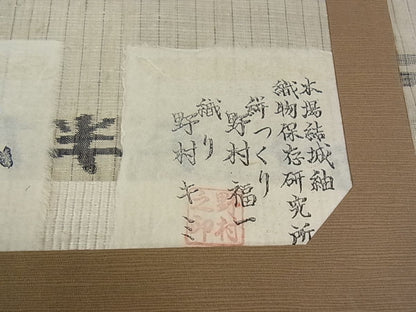 本場結城紬
織物保存研究所
絣つくり
野村福一
織り
野村キミ
野村
之印
半